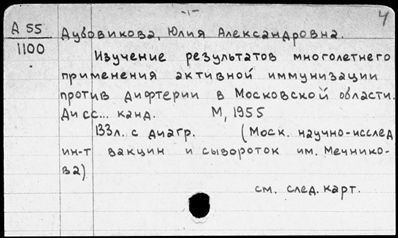 -1-
4
А 55
1100
Дубовикова, Юлия Александровна.
Изучение результатов многолетнего
применения активной иммунизации
против дифтерии в Московской области.
Дисс... канд. М, 1955
133л. с диагр. (Моск. научно-исслед
ин-т вакцин и сывороток им. Мечнико-
ва)
см. след. карт.